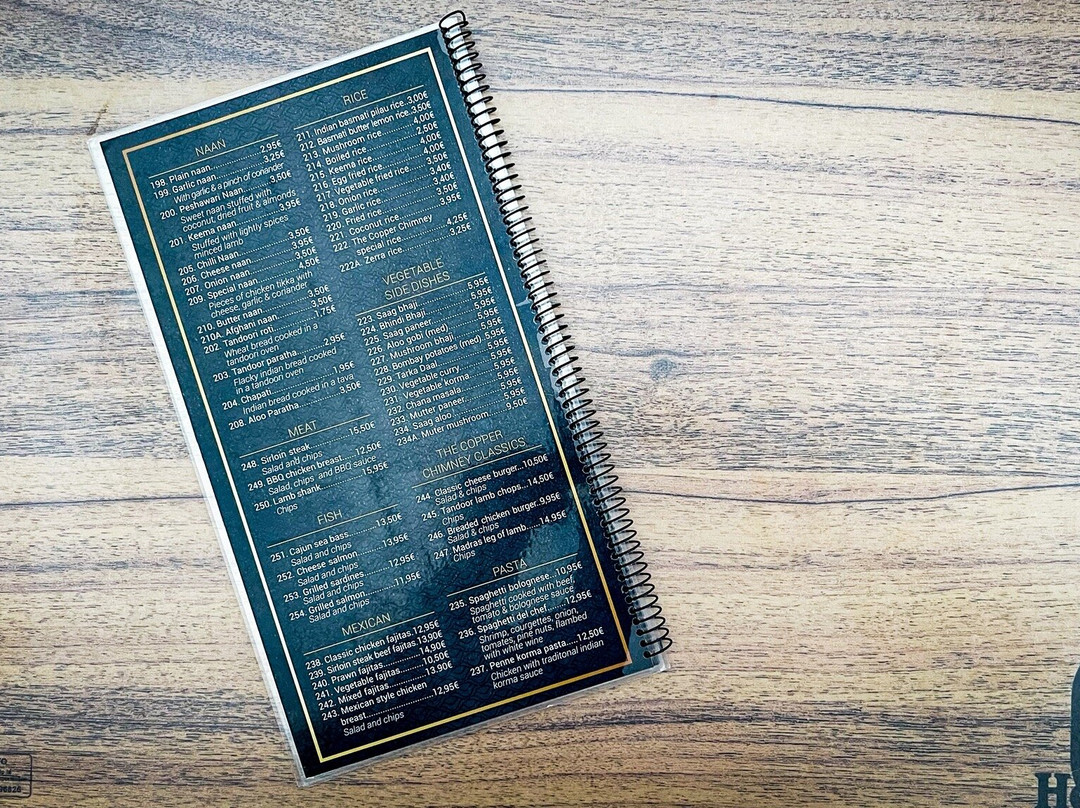 NAAN
198. Plain naan..................2.95€
199. Garlic naan................3.25€
With garlic & a pinch of coriander
200. Peshawari Naan.........3.50€
Sweet naan stuffed with
coconut, dried fruit & almonds
201. Keema naan..............3.95€
Stuffed with lightly spices
minced lamb
205. Chilli Naan..................3.50€
206. Cheese naan..............3.95€
207. Onion naan.................3.50€
209. Special naan...............4,50€
Pieces of chicken tikka with
cheese, garlic & coriander
210. Butter naan.................3,50€
210A. Afghani naan............3,50€
202. Tandoori roti................1.75€
Wheat bread cooked in a
tandoori oven
203. Tandoor paratha..........2,95€
Flacky indian bread cooked
in a tandoon oven
204. Chapati.......................1.95€
Indian bread cooked in a tava
208. Aloo Paratha...............3,50€
MEAT
248. Sirloin steak................15,50€
Salad and chips
249. BBQ chicken breast.....12,50€
Salad, chips and BBQ sauce
250. Lamb shank................15,95€
Chips
FISH
251. Cajun sea bass...........13,50€
Salad and chips
252. Cheese salmon...........13.95€
Salad and chips
253. Grilled sardines..........12,95€
Salad and chips
254. Grilled salmon.............11,95€
Salad and chips
MEXICAN
238. Classic chicken fajitas.12,95€
239. Sirloin steak beef fajitas.13,90€
240. Prawn fajitas...............14,90€
241. Vegetable fajitas..........10,50€
242. Mixed fajitas................13,90€
243. Mexican style chicken
breast.........................12,95€
Salad and chips
RICE
211. Indian basmati pilau rice..3,00€
212. Basmati butter lemon rice.3,50€
213. Mushroom rice...........4,00€
214. Boiled rice..................2,50€
215. Keema rice.................4,00€
216. Egg fried rice..............4,00€
217. Vegetable fried rice.....3,50€
218. Onion rice...................3,40€
219. Garlic rice...................3,40€
220. Fried rice....................3,50€
221. Coconut rice...............3,95€
222. The Copper Chimney
special rice.................4,25€
222A. Zerra rice..................3,25€
VEGETABLE
SIDE DISHES
223. Saag bhaji..................5,95€
224. Bhindi Bhaji................5,95€
225. Saag paneer...............5,95€
226. Aloo gobi (med)..........5,95€
227. Mushroom bhaji..........5,95€
228. Bombay potatoes (med).5,95€
229. Tarka Daal..................5,95€
230. Vegetable curry...........5,95€
231. Vegetable korma.........5,95€
232. Chana masala............5,95€
233. Mutter paneer.............5,95€
234. Saag aloo...................5,95€
234A. Muter mushroom.......9,50€
THE COPPER
CHIMNEY CLASSICS
244. Classic cheese burger...10,50€
Salad & chips
245. Tandoor lamb chops...14,50€
Chips
246. Breaded chicken burger..9,95€
Salad & chips
247. Madras leg of lamb......14,95€
Chips
PASTA
235. Spaghetti bolognese...10,95€
Spaghetti cooked with beef,
tomato & bolognese sauce
236. Spaghetti del chef.......12,95€
Shrimp, courgettes, onion,
tomates, pine nuts, flambed
with white wine
237. Penne korma pasta.....12,50€
Chicken with traditonal indian
korma sauce